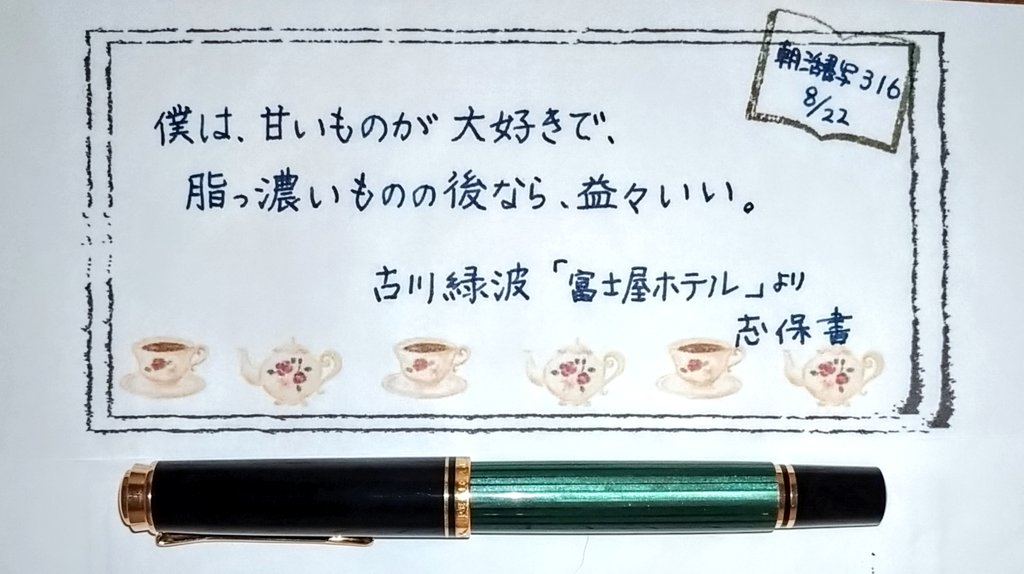 朝活書写316
8/22
僕は、甘いものが大好きで、
脂っ濃いものの後なら、益々いい。
古川緑波「富士屋ホテル」より
志保書